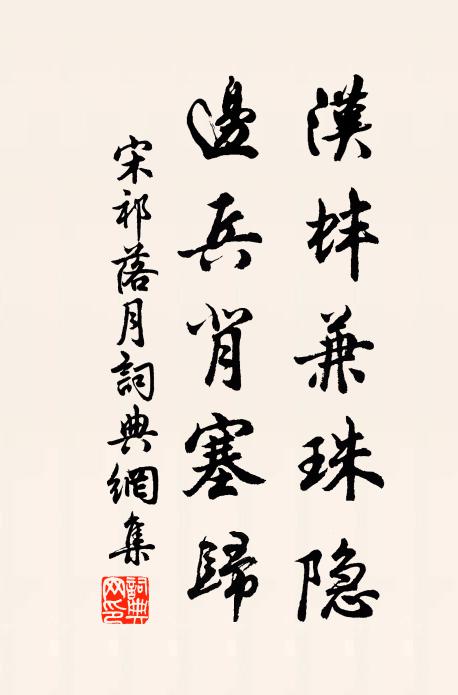 漢蚌兼珠隐
邊兵背塞歸
宋祁落月詞典網集
詞典网印